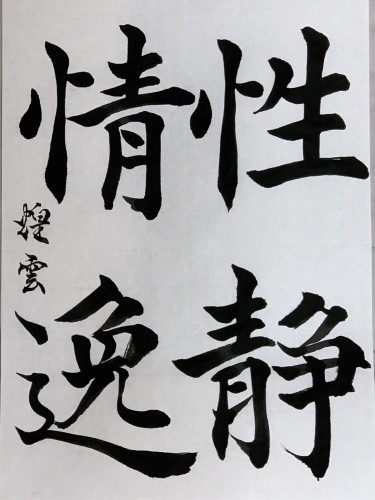 性静
情逸
煌雲